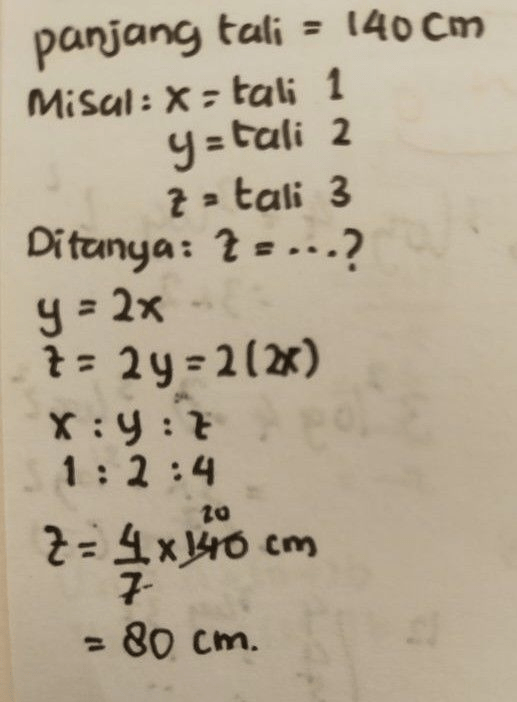 panjang tali = 140 cm
Misal : x = tali 1
y = tali 2
z = tali 3
Ditanya : z = ...?
y = 2x
z = 2y = 2(2x)
x : y : z
1 : 2 : 4
20
z = 4/7 x 140 cm
= 80 cm.